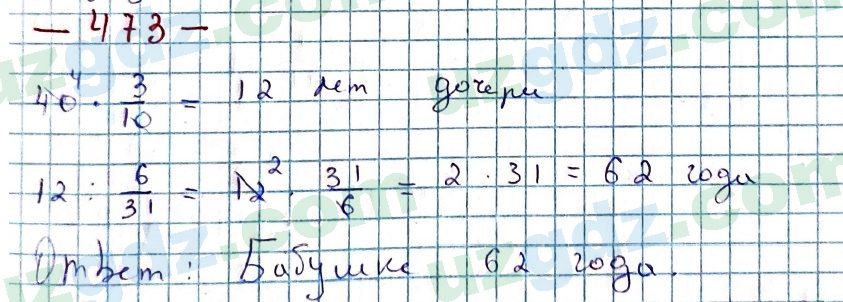 — 473 —
40⁴ · 3/10 = 12 лет дочери
12 : 6/31 = 12² · 31/6 = 2 · 31 = 62 года
Ответ: Бабушке 62 года.
uzgdz.com